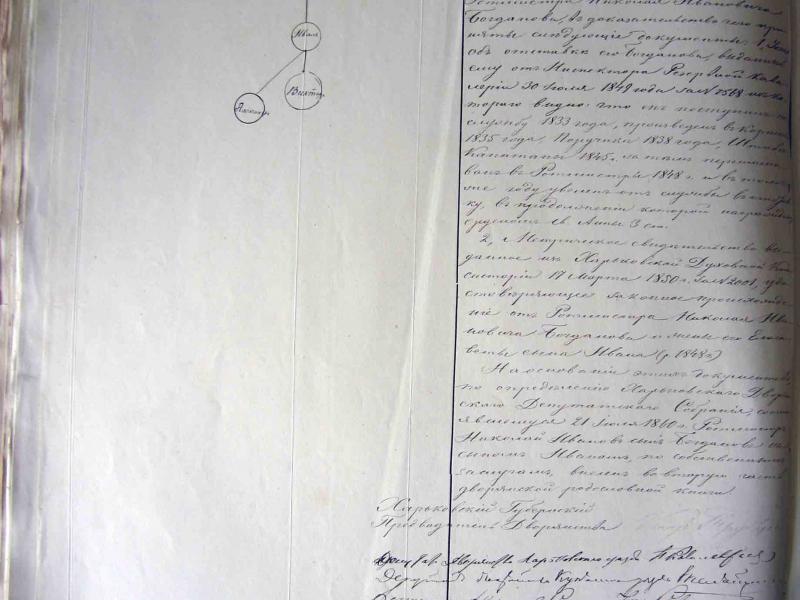 Иванъ
Викторъ
Ротмистра Николая Ивановича
Богданова, въ доказательство чего при
няты слѣдующіе документы: 1, Указъ
объ отставкѣ его Богданова, выданный
ему отъ Инспектора Резервной Кава
леріи 30 Іюля 1849 года за № изъ ко
тораго видно: что онъ поступилъ въ
службу 1833 года, произведенъ въ Корнеты
1835 года, Поручики 1838 года, Штабсъ
Капитаны 1845 г. за тѣмъ переимено
ванъ въ Ротмистры 1848 г. и въ томъ
же году уволенъ отъ службы въ отстав
ку, въ продолженіи которой награжденъ
орденомъ Св. Анны 3 ст.
2, Метрическое свидѣтельство вы
данное изъ Харьковской Духовной Кон
систоріи 17 Марта 1850 г. за № 2001, удо
стовѣряющее законное происхожде
ніе отъ Ротмистра Николая Ива
новича Богданова и жены его Елиса
веты сына Ивана (р. 1848 г.)
На основаніи этихъ документовъ,
по опредѣленію Харьковскаго Дворян
скаго Депутатскаго Собранія, состо
явшемуся 21 Іюля 1860 г. Ротмистръ
Николай Ивановъ сынъ Богдановъ съ
сыномъ Иваномъ, по собственнымъ
заслугамъ, внесенъ во вторую часть
дворянской родословной книги.
Харьковскій Губернскій
Предводитель Дворянства
Дворянства Харьковскаго уѣзда
Депутатъ